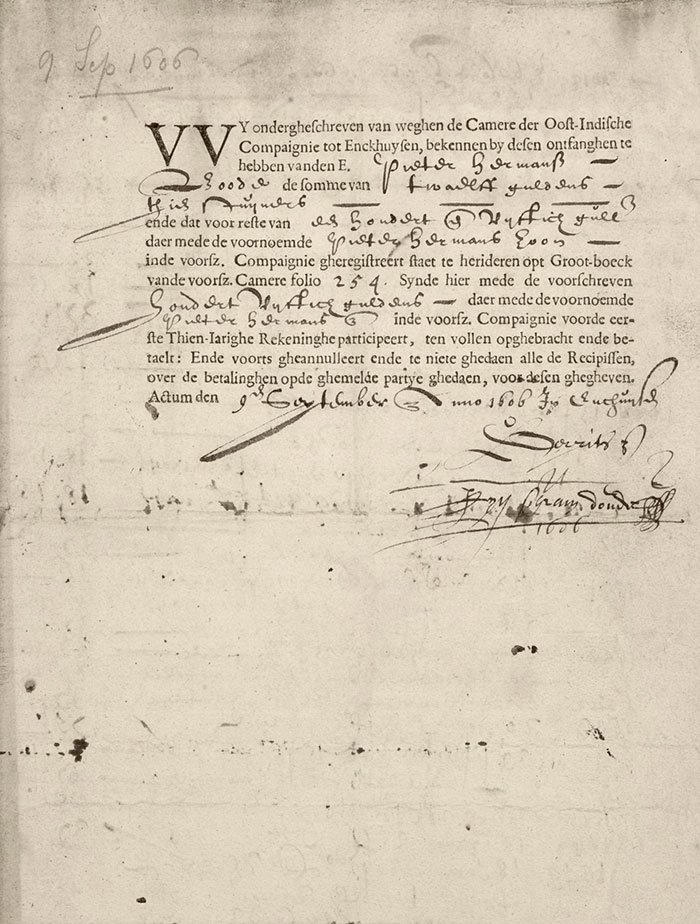 9 Sep 1606
VVY ondergheschreven van weghen de Camere der Oost-Indische
Compaignie tot Enckhuysen, bekennen by desen ontfanghen te
hebben vanden E. Pieter Hermansz
de somme van twaelff guldens
ende dat voor reste van een hondert vyftich gull
daer mede de voornoemde Pieter Hermans zoon
inde voorsz. Compaignie gheregistreert staet te herideren opt Groot-boeck
vande voorsz. Camere folio 254. Synde hier mede de voorschreven
hondert vyftich guldens daer mede de voornoemde
Pieter Hermans inde voorsz. Compaignie voorde eer-
ste Thien-Iarighe Rekeninghe participeert, ten vollen opghebracht ende be-
taelt: Ende voorts gheannulleert ende te niete ghedaen alle de Recipissen,
over de betalinghen opde ghemelde partye ghedaen, voor desen ghegheven.
Actum den 9en September Anno 1606 In
1606